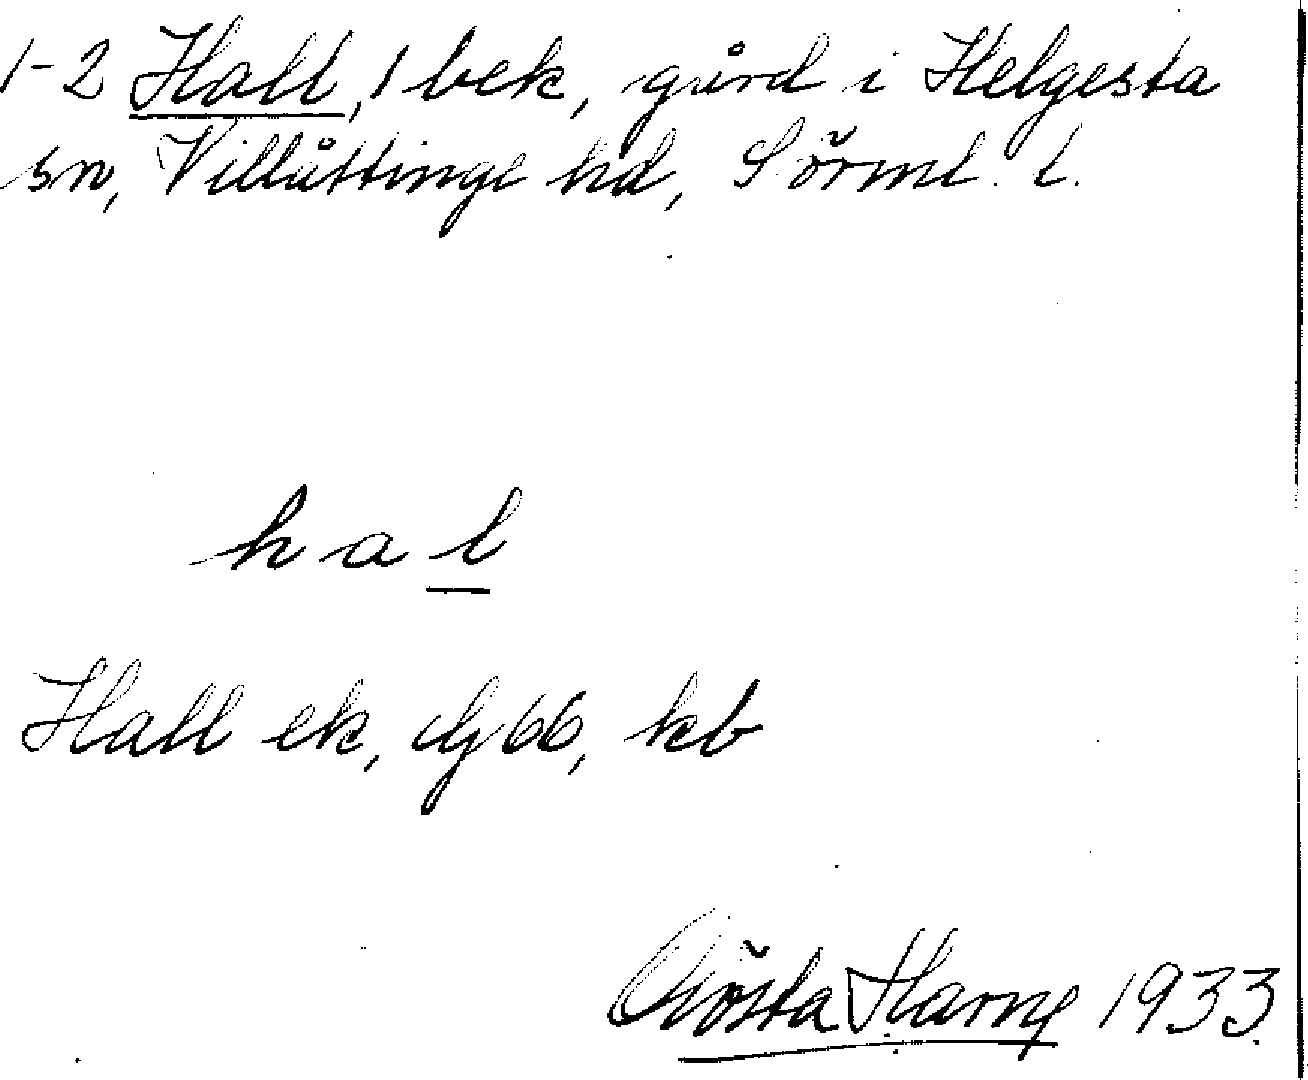 1-2 Hall, 1 bek, gård i Helgesta
sn, Villåttinge hd, Sörml. l.
hal
Hall ek, dj 66, kb
Gösta Harne 1933.